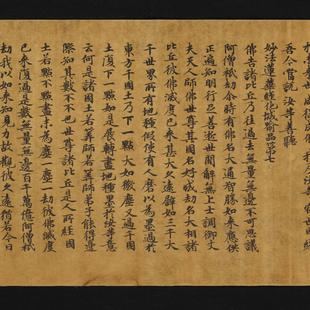 吾今當說 汝等善聽
妙法蓮華經化城喻品第七
佛告諸比丘乃往過去無量無邊不可思議
阿僧祇劫尒時有佛名大通智勝如來應供
正遍知明行足善逝世間解無上士調御丈
夫天人師佛世尊其國名好城劫名大相諸
比丘彼佛滅度已來甚大久遠譬如三千大
千世界所有地種假使有人磨以為墨過於
東方千國土乃下一點大如微塵又過千國
土復下一點如是展轉盡地種墨於汝等意
云何是諸國土若筭師若筭師弟子能得邊
際知其數不不也世尊諸比丘是人所經國
土若點不點盡末為塵一塵一劫彼佛滅度
已來復過是數無量無邊百千萬億阿僧祇
劫我以如來知見力故觀彼久遠猶若今日